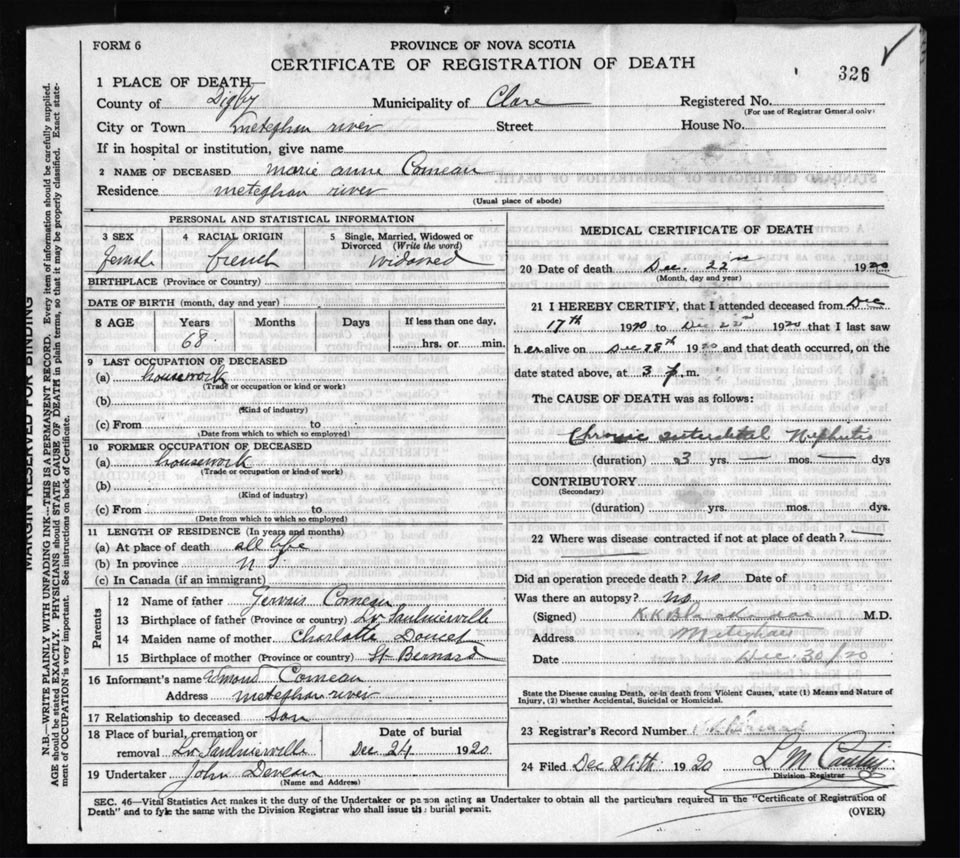 FORM 6
PROVINCE OF NOVA SCOTIA
CERTIFICATE OF REGISTRATION OF DEATH
326
1 PLACE OF DEATH
County of Digby Municipality of Clare Registered No.
(For use of Registrar General only)
City or Town Meteghan river Street House No.
If in hospital or institution, give name
2 NAME OF DECEASED Marie Anne Comeau
Residence Meteghan river
(Usual place of abode)
PERSONAL AND STATISTICAL INFORMATION
3 SEX 4 RACIAL ORIGIN 5 Single, Married, Widowed or Divorced (Write the word)
female french Widowed
BIRTHPLACE (Province or Country)
DATE OF BIRTH (month, day and year)
8 AGE Years Months Days If less than one day,
68 hrs. or min.
9 LAST OCCUPATION OF DECEASED
(a) housework
(Trade or occupation or kind or work)
(b)
(Kind of industry)
(c) From to
(Date from which to which so employed)
10 FORMER OCCUPATION OF DECEASED
(a) housework
(Trade or occupation or kind of work)
(b)
(Kind of industry)
(c) From to
(Date from which to which so employed)
11 LENGTH OF RESIDENCE (In years and months)
(a) At place of death all life
(b) In province N S
(c) In Canada (if an immigrant)
Parents
12 Name of father Gervais Comeau
13 Birthplace of father (Province or country) Lr Saulnierville
14 Maiden name of mother Charlotte Doucet
15 Birthplace of mother (Province or country) St Bernard
16 Informant's name Edmond Comeau
Address Meteghan river
17 Relationship to deceased son
18 Place of burial, cremation or Date of burial
removal Lr Saulnierville Dec 24 1920
19 Undertaker John Deveau
(Name and Address)
MEDICAL CERTIFICATE OF DEATH
20 Date of death Dec. 22nd 1920
(Month, day and year)
21 I HEREBY CERTIFY, that I attended deceased from Dec
17th 1920 to Dec 22nd 1920 that I last saw
her alive on Dec 1920 and that death occurred, on the
date stated above, at 3 p. m.
The CAUSE OF DEATH was as follows:
Chronic interstitial Nephritis
(duration) 3 yrs. — mos. — dys
CONTRIBUTORY
(Secondary)
(duration) yrs. mos. dys.
22 Where was disease contracted if not at place of death?
Did an operation precede death? no Date of
Was there an autopsy? no
(Signed) M.D.
Address Meteghan
Date Dec. 30/20
State the Disease causing Death, or in death from Violent Causes, state (1) Means and Nature of
Injury, (2) whether Accidental, Suicidal or Homicidal.
23 Registrar's Record Number
24 Filed Dec 1920
Division Registrar
SEC. 46—Vital Statistics Act makes it the duty of the Undertaker or person acting as Undertaker to obtain all the particulars required in the "Certificate of Registration of
Death" and to fyle the same with the Division Registrar who shall issue the burial permit.
(OVER)
MARGIN RESERVED FOR BINDING
N.B.—WRITE PLAINLY WITH UNFADING INK—THIS IS A PERMANENT RECORD. Every item of information should be carefully supplied.
AGE should be stated EXACTLY. PHYSICIANS should STATE CAUSE OF DEATH in plain terms, so that it may be properly classified. Exact state-
ment of OCCUPATION is very important. See instructions on back of Certificate.